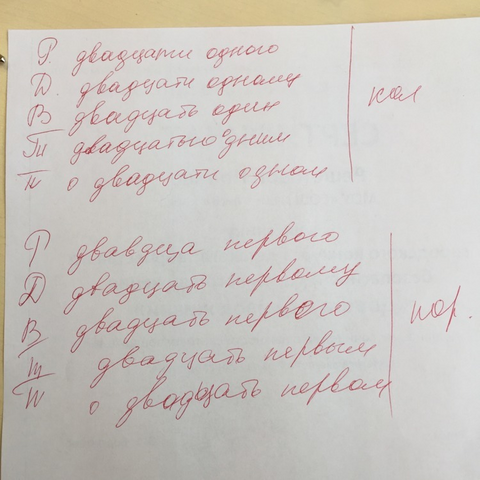 Р. двадцати одного
Д. двадцати одному
В двадцать один
Тп двадцатью одним
П о двадцати одном
кол
Р двавдца первого
Д двадцать первому
В двадцать первого
Тп двадцать первым
П о двадцать первом
пор.